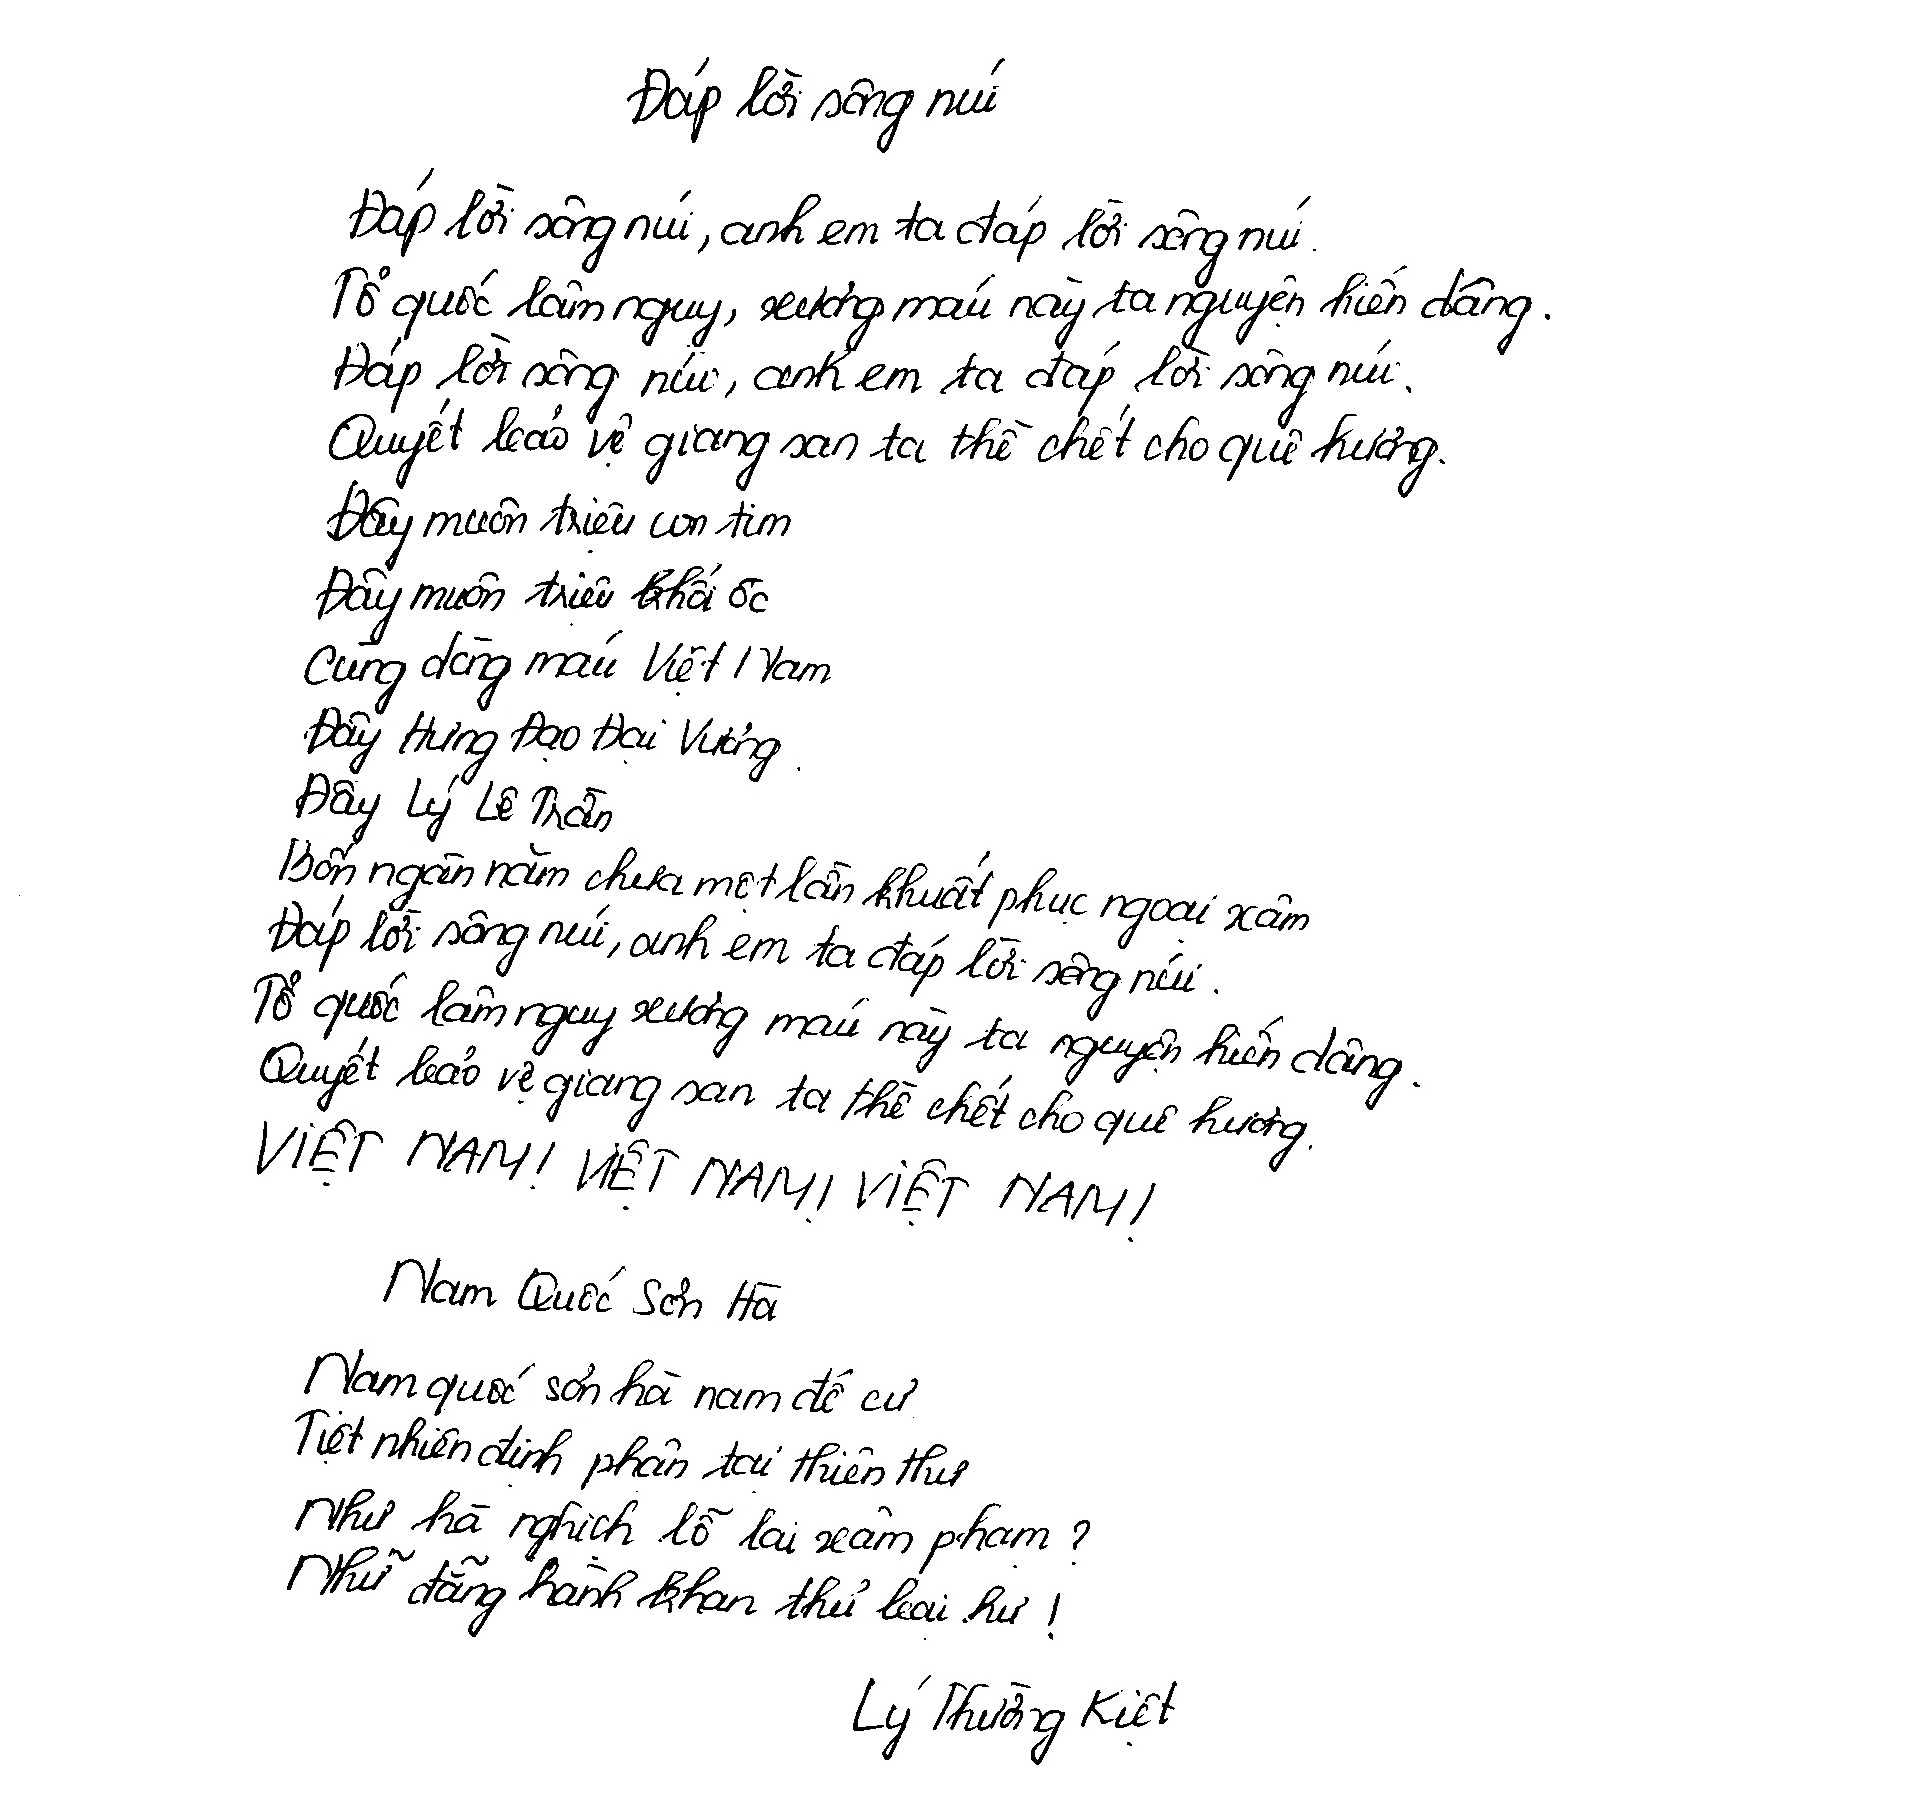 Đáp lời sông núi
Đáp lời sông núi, anh em ta đáp lời sông núi.
Tổ quốc lâm nguy, xương máu này ta nguyện hiến dâng.
Đáp lời sông núi, anh em ta đáp lời sông núi.
Quyết bảo vệ giang san ta thề chết cho quê hương.
Đây muôn triệu con tim
Đây muôn triệu khối óc
Cùng dòng máu Việt Nam
Đây Hưng Đạo Đại Vương.
Đây Lý Lê Trần
Bốn ngàn năm chưa một lần khuất phục ngoại xâm
Đáp lời sông núi, anh em ta đáp lời sông núi.
Tổ quốc lâm nguy xương máu này ta nguyện hiến dâng.
Quyết bảo vệ giang san ta thề chết cho quê hương.
VIỆT NAM! VIỆT NAM! VIỆT NAM!
Nam Quốc Sơn Hà
Nam quốc sơn hà nam đế cư
Tiệt nhiên định phận tại thiên thư
Như hà nghịch lỗ lai xâm phạm?
Nhữ đẳng hành khan thủ bại hư!
Lý Thường Kiệt